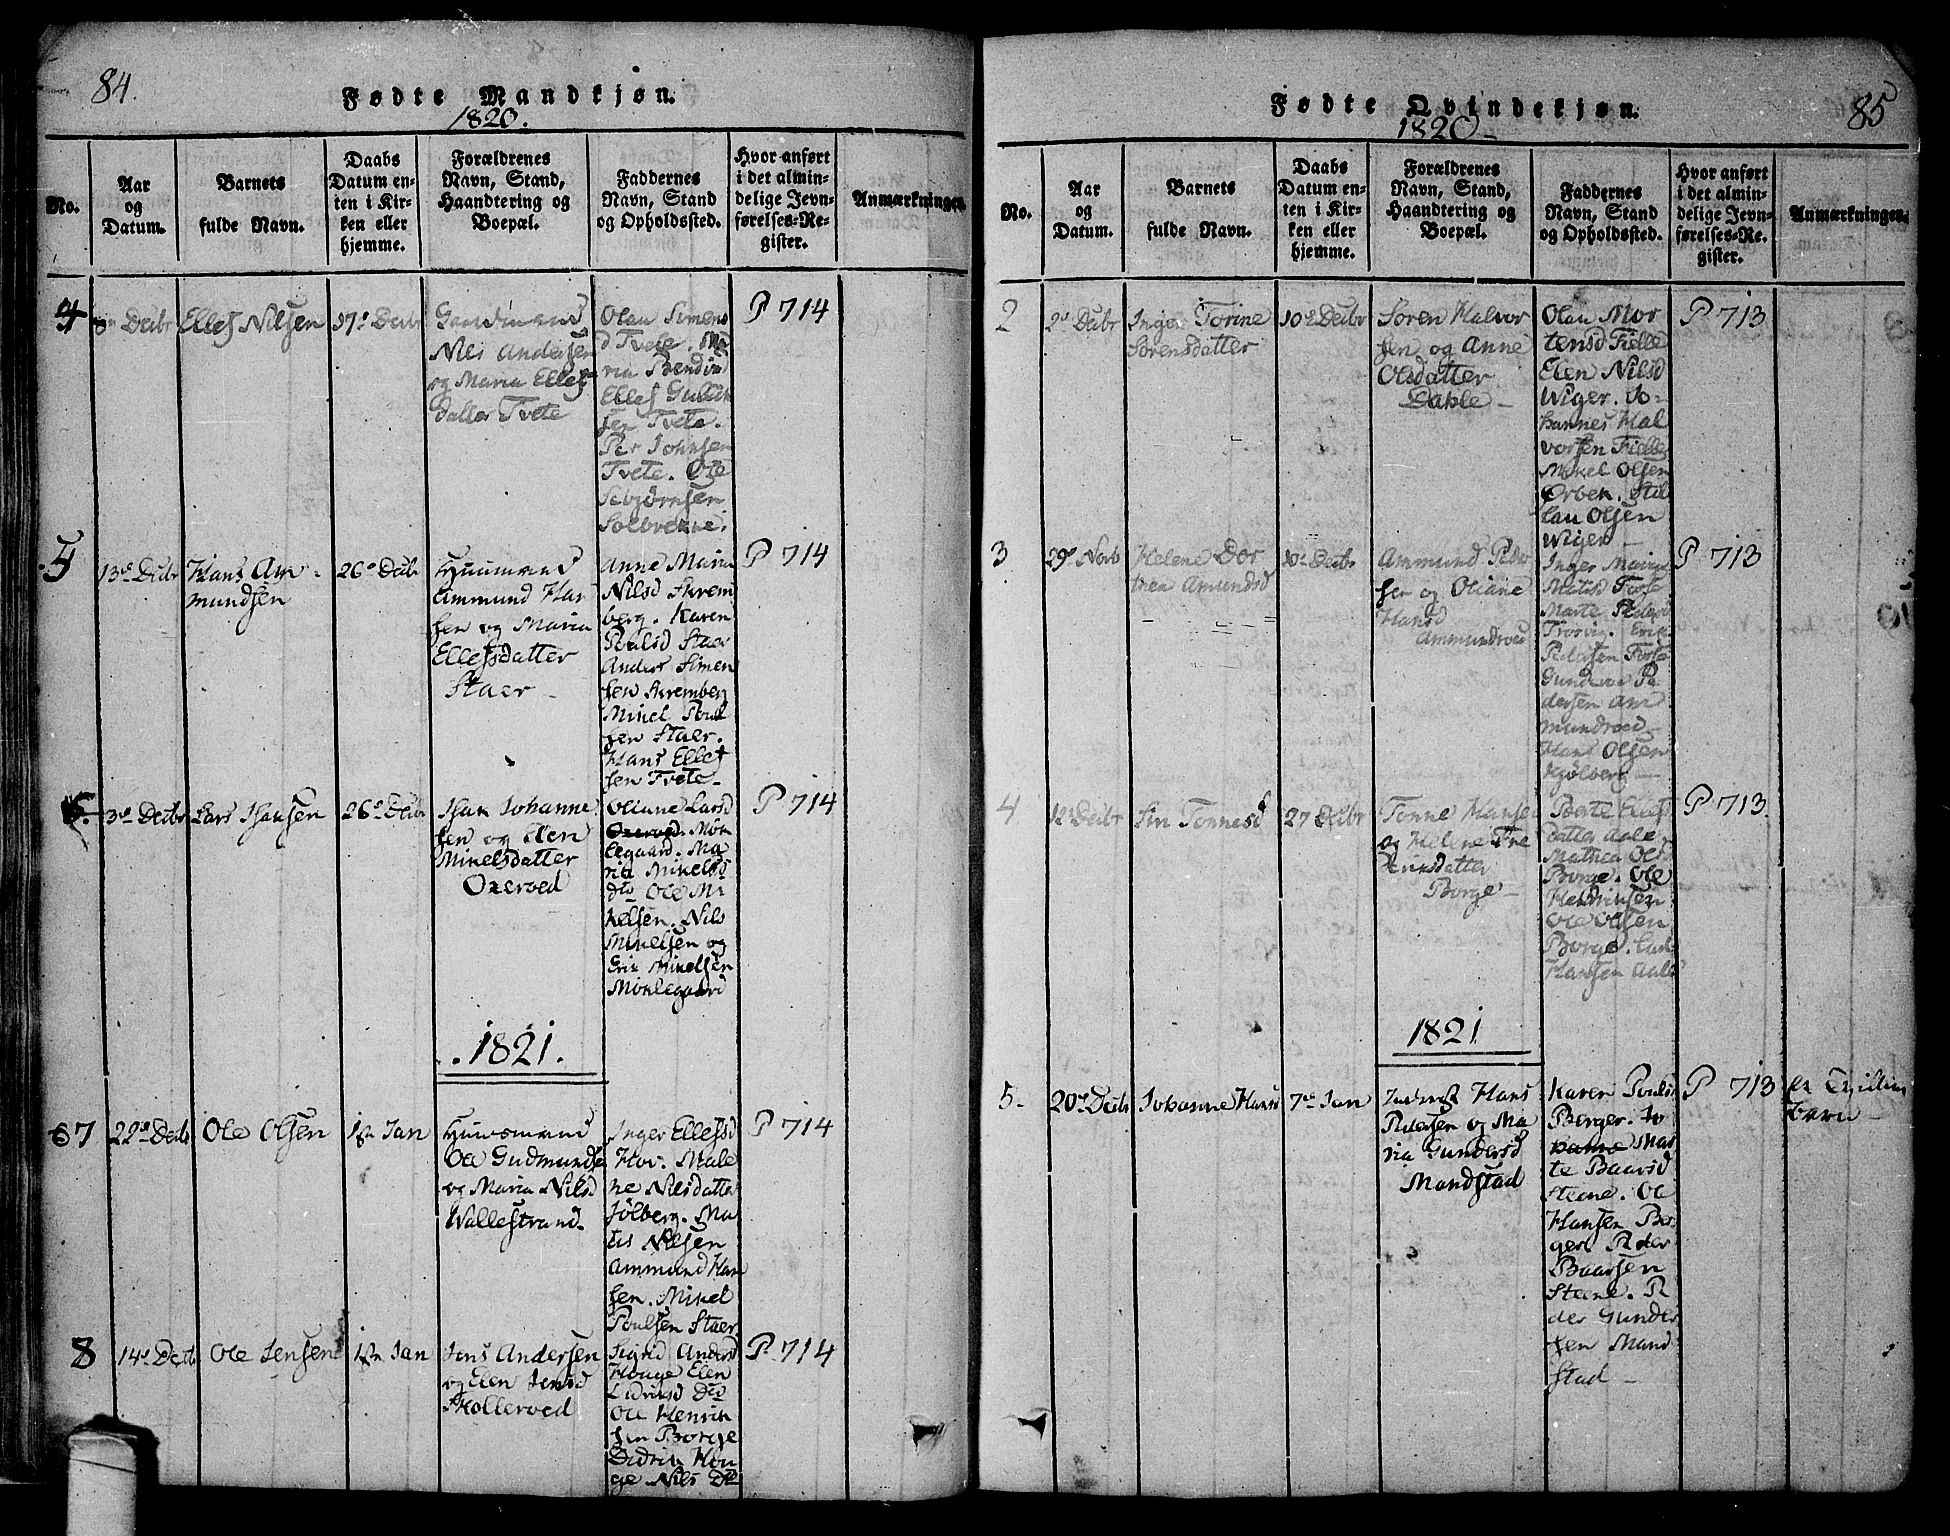 84.
Fødte Mandkjøn.
1820.
No.
Aar
og
Datum.
Barnets
fulde Navn.
Daabs
Datum en-
ten i Kir-
ken eller
hjemme.
Forældrenes
Navn, Stand,
Haandtering og
Boepæl.
Faddernes
Navn, Stand
og Opholdssted.
Hvor anført
i det almin-
delige Jevn-
førelses-Re-
gister.
Anmærkninger.
4
Decbr
Ellef Nilsen
17de Decbr
Nils Andersen
og Maria Ellefs
datter Tvete
Olau Simens
d Tvete. Ma
ria Bendixsd
Ellef Gulich
sen Tvete.
Per Johnsen
Tvete. Ole
Sebjørnsen
Solbrekke.
P 714
5
13de Decbr
Hans Am-
mundsen
26de Decbr
Huusmand
Ammund Han
sen og Maria
Ellefsdatter
Staer
Anne Maria
Nilsd Skrem
berg. Karen
Poulsd Staer
Anders Simen
sen Skremberg
Mikel Poul
sen Staer.
Hans Ellef
sen Tvete
P 714
6.
3de Decbr
Lars Isaksen
26de Decbr
Isak Johanne
sen og Elen
Mikelsdatter
Oxeroed
Oliane Larsd
Oxeroed. Mok
legaard. Ma
ria Mikelsd
do Ole Mi
kelsen. Nils
Mikelsen og
Erik Mikelsen
Moklegaard
P 714
1821.
7
22de Decbr
Ole Olsen
1ste Jan
Huusmand
Ole Gudmundse
og Maria Nilsd
Wallestrand.
Inger Ellefsd
Hov. Male
ne Nilsdatter
Jølberg. Ma
tis Nilsen
Ammund Han
sen. Mikel
Poulsen Staer.
P 714
8
14de Decbr
Ole Jensen
1ste Jan
Jens Andersen
og Elen Jensd
Skolleroed
Sigrid Andersd
Houge Elen
Didriksd do
Ole Henrik
sen Borge
Didrik Hou
ge Nils do
P 714
85
Fødte Qvindekjøn.
1820
No.
Aar
og
Datum.
Barnets
fulde Navn.
Daabs
Datum en-
ten i Kir-
ken eller
hjemme.
Forældrenes
Navn, Stand,
Haandtering og
Boepæl.
Faddernes
Navn, Stand
og Opholdssted.
Hvor anført
i det almin-
delige Jevn-
førelses-Re-
gister.
Anmærkninger.
2
2de Decbr
Inger Torine
Sørensdatter
10de Decbr
Søren Halvor
sen og Anne
Olsdatter
Dahle
Olau Mor
tensd Fielle
Elen Nilsd
Wiger. Jo-
hannes Hal
vorsen Fielle
Mikel Olsen
Ørbek. Stil
lau Olsen
Wiger
P 713
3
29de Novb
Helene Dor
thea Amundsd
Decbr
Ammund Peder
sen og Oliane
Hansd
Ammundroed
Inger Marie
Torp
Marte Pedersd
Trosvig. Erik
Pedersen Torp
Gunder Pe
dersen Am
mundroed
Hans Olsen
Kjølberg
P 713
4
12 Decbr
Siri Tønnesd
27 Decbr
Tønne Hansen
og Helene Fre
driksdatter
Borge
Berte Ellefs
datter Aale
Mathea Olsd
Borge. Ole
Hendriksen
Ole Olsen
Borge. Lars
Hansen Aale
P 713.
1821
5.
20de Decb
Johanne Hansd
7de Jan
Inderst Hans
Pedersen og Ma
ria Gundersd
Mandstad
Karen Poulsd
Berger. Jo
hanne Mar
te Baarsd
Steene. Ole
Hansen Ber
ger. Peder
Baarsen
Steene. Pe
der Gunder
sen Mand
stad
P 713